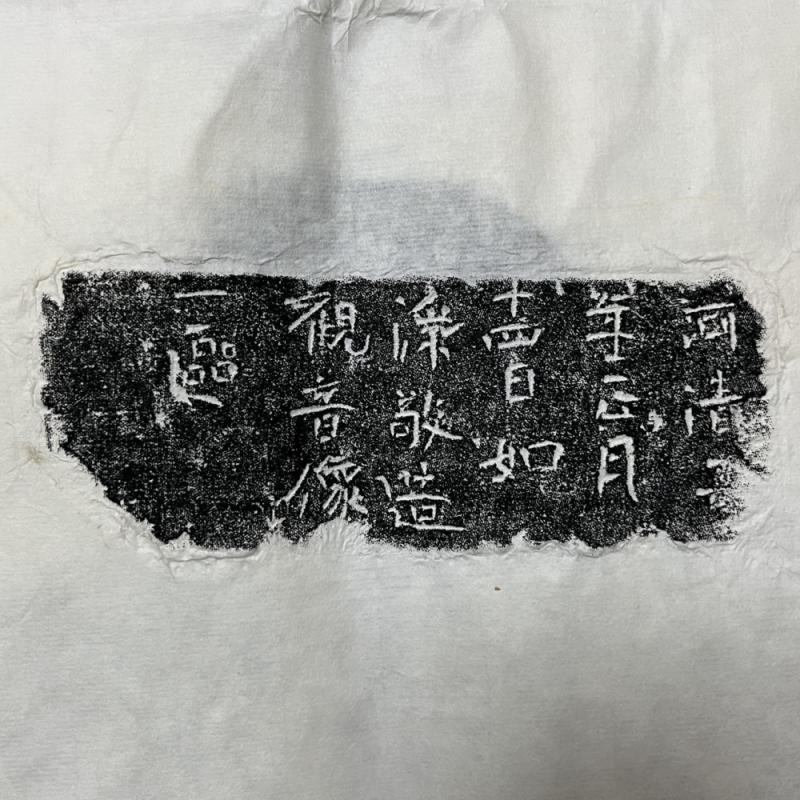 河清
年正月
十四日如
敬造
觀音像
一區